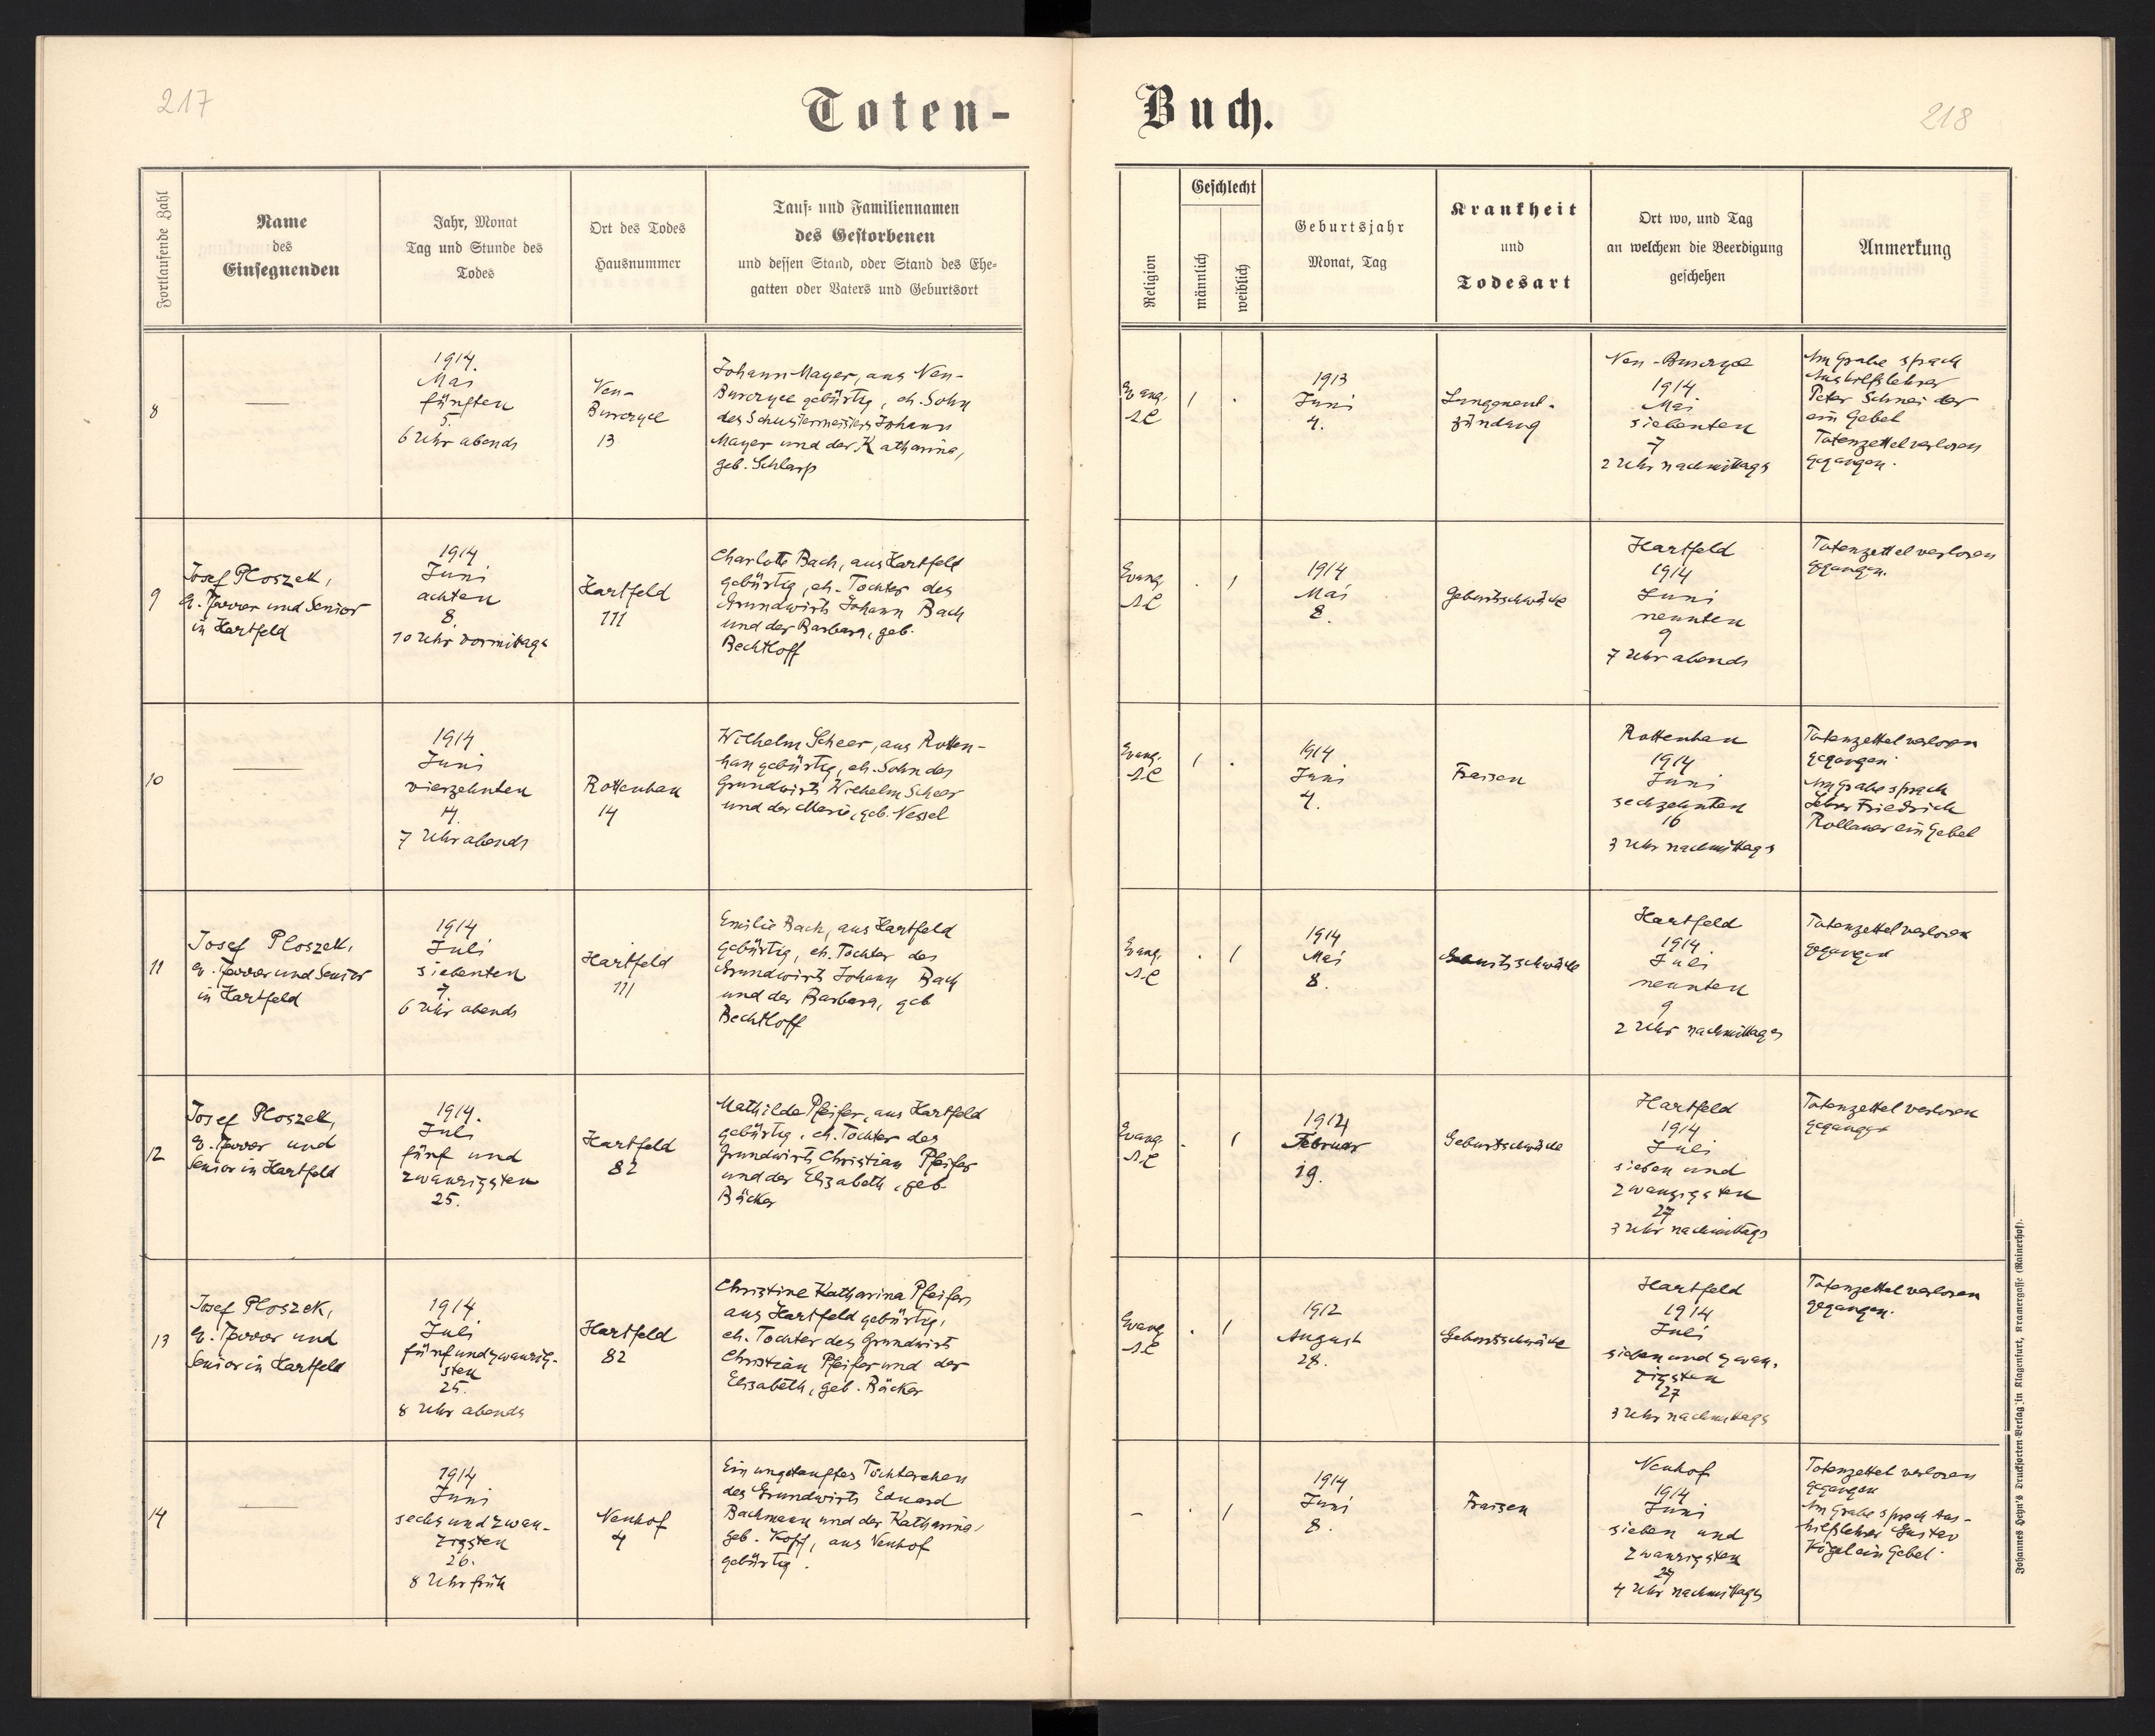 217
Toten-
Fortlaufende Zahl
Name
des
Einsegnenden
Jahr, Monat
Tag und Stunde des
Todes
Ort des Todes
Hausnummer
Tauf- und Familiennamen
des Gestorbenen
und dessen Stand, oder Stand des Ehe-
gatten oder Vaters und Geburtsort
8
1914.
Mai
fünften
5.
6 Uhr abends
Neu-
Burczyce
13
Johann Mayer, aus Neu-
Burczyce gebürtig, eh. Sohn
des Schustermeisters Johann
Mayer und der Katharina,
geb. Schlarp
9
Josef Ploszek,
ev. Pfarrer und Senior
in Hartfeld
1914
Juni
achten
8.
10 Uhr vormittags
Hartfeld
111
Charlotte Bach, aus Hartfeld
gebürtig, eh. Tochter des
Grundwirts Johann Bach
und der Barbara, geb.
Bechtloff
10
1914
Juni
vierzehnten
14.
7 Uhr abends
Rottenhan
14
Wilhelm Scheer, aus Rotten-
han gebürtig, eh. Sohn des
Grundwirts Wilhelm Scheer
und der Marie, geb. Nessel
11
Josef Ploszek,
ev. Pfarrer und Senior
in Hartfeld
1914
Juli
siebenten
7
6 Uhr abends
Hartfeld
111
Emilie Bach, aus Hartfeld
gebürtig, eh. Tochter des
Grundwirts Johann Bach
und der Barbara, geb
Bechtloff
12
Josef Ploszek,
ev. Pfarrer und
Senior in Hartfeld
1914.
Juli
fünf und
zwanzigsten
25.
Hartfeld
82
Mathilde Pfeifer, aus Hartfeld
gebürtig, eh. Tochter des
Grundwirts Christian Pfeifer
und der Elisabeth, geb
Bäcker
13
Josef Ploszek,
ev. Pfarrer und
Senior in Hartfeld
1914
Juli
fünfundzwanzig-
sten
25.
8 Uhr abends
Hartfeld
82
Christine Katharina Pfeifer,
aus Hartfeld gebürtig,
eh. Tochter des Grundwirts
Christian Pfeifer und der
Elisabeth, geb. Bäcker
14
1914
Juni
sechsundzwan-
zigsten
26.
8 Uhr früh
Neuhof
4
Ein ungetauftes Töchterchen
des Grundwirts Eduard
Bachmann und der Katharina,
geb. Kopf, aus Neuhof
gebürtig.
Buch.
218
Religion
Geschlecht
männlich
weiblich
Geburtsjahr
Monat, Tag
Krankheit
und
Todesart
Ort wo, und Tag
an welchem die Beerdigung
geschehen
Anmerkung
Evang.
A.C
1
.
1913
Juni
4.
Lungenent-
zündung
Neu-Burczyce
1914
Mai
siebenten
7
2 Uhr nachmittags
Am Grabe sprach
Aushilfslehrer
Peter Schneider
ein Gebet
Totenzettel verloren
gegangen.
Evang.
A.C
.
1
1914
Mai
8.
Geburtsschwäche
Hartfeld
1914
Juni
neunten
9
7 Uhr abends
Totenzettel verloren
gegangen.
Evang.
A.C
1
.
1914
Juni
4.
Fraisen
Rottenhan
1914
Juni
sechzehnten
16
3 Uhr nachmittags
Totenzettel verloren
gegangen.
Am Grabe sprach
Lehrer Friedrich
Rollauer ein Gebet
Evang.
A.C
.
1
1914
Mai
8.
Geburtsschwäche
Hartfeld
1914
Juli
neunten
9
2 Uhr nachmittags
Totenzettel verloren
gegangen
Evang.
A.C
.
1
1914
Februar
19.
Geburtsschwäche
Hartfeld
1914
Juli
sieben und
zwanzigsten
27
3 Uhr nachmittags
Totenzettel verloren
gegangen
Evang
A.C
.
1
1912
August
28.
Geburtsschwäche
Hartfeld
1914
Juli
siebenundzwan-
zigsten
27
3 Uhr nachmittags
Totenzettel verloren
gegangen.
-
.
1
1914
Juni
8.
Fraisen
Neuhof
1914
Juni
sieben und
zwanzigsten
27
4 Uhr nachmittags
Totenzettel verloren
gegangen
Am Grabe sprach Aus-
hilfslehrer Gustav
Kögel ein Gebet.
Johannes Heyn's Drucksorten-Verlag in Klagenfurt, Kramergasse (Rainerhof).